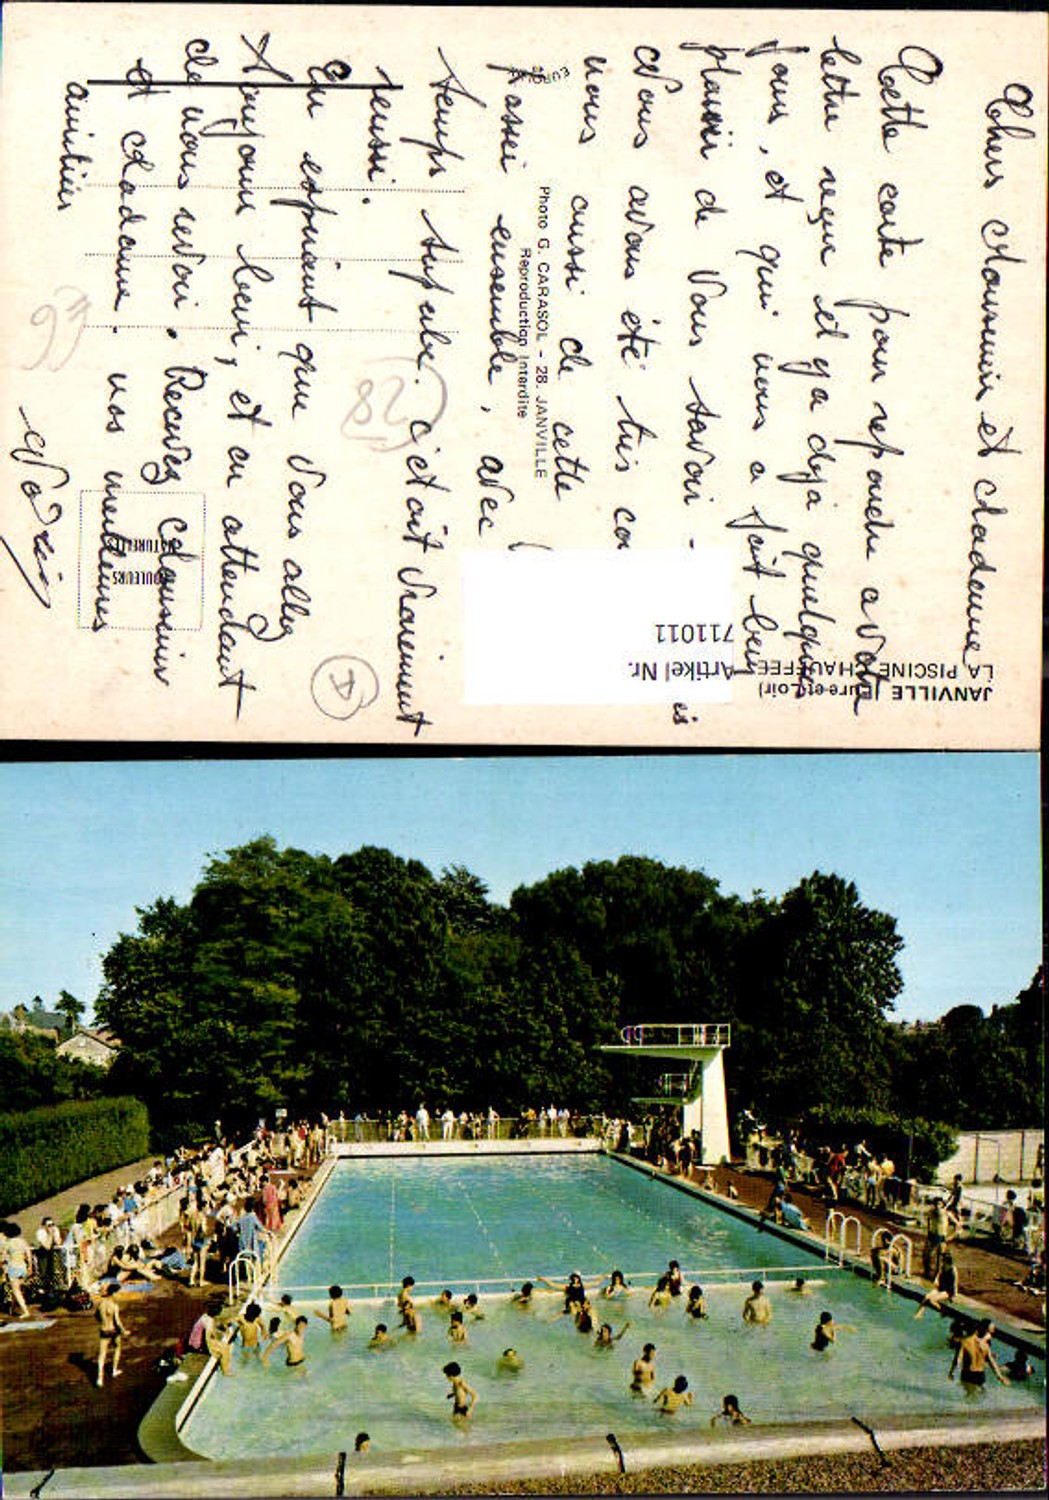 Chers Monsieur et Madame,
Cette carte pour répondre a votre
lettre reçue il y a déjà quelques
jours, et qui nous a fait bien
plaisir de vous savoir -
Nous avons été très co is
nous aussi de cette
passé ensemble, avec
temps superbe. C'était vraiment
réussi.
En espérant que vous allez
toujours bien, et en attendant
de vous revoir. Recevez Monsieur
et Madame. nos meilleures
amitiés
JANVILLE (Eure-et-Loir)
LA PISCINE CHAUFFEE
Artikel Nr.
711011
Photo G. CARASOL - 28. JANVILLE
Reproduction Interdite
EUROLUX
COULEURS
NATURELLES
(28)
D